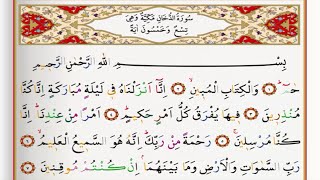 سُورَةُ الدُّخَانِ مَكِّيَّةٌ وَهِيَ
تِسْعٌ وَخَمْسُونَ اٰيَةً
بِسْمِ اللّٰهِ الرَّحْمٰنِ الرَّحِيمِ
حٰمٓ ۝ وَالْكِتَابِ الْمُبِينِ ۝ اِنَّٓا اَنْزَلْنَاهُ فِى لَيْلَةٍ مُبَارَكَةٍ اِنَّا كُنَّا
مُنْذِرِينَ ۝ فِيهَا يُفْرَقُ كُلُّ اَمْرٍ حَكِيمٍ ۝ اَمْرًا مِنْ عِنْدِنَا اِنَّا
كُنَّا مُرْسِلِينَ ۝ رَحْمَةً مِنْ رَبِّكَ اِنَّهُ هُوَ السَّمِيعُ الْعَلِيمُ ۝
رَبِّ السَّمٰوَاتِ وَالْاَرْضِ وَمَا بَيْنَهُمَا اِنْ كُنْتُمْ مُوقِنِينَ ۝